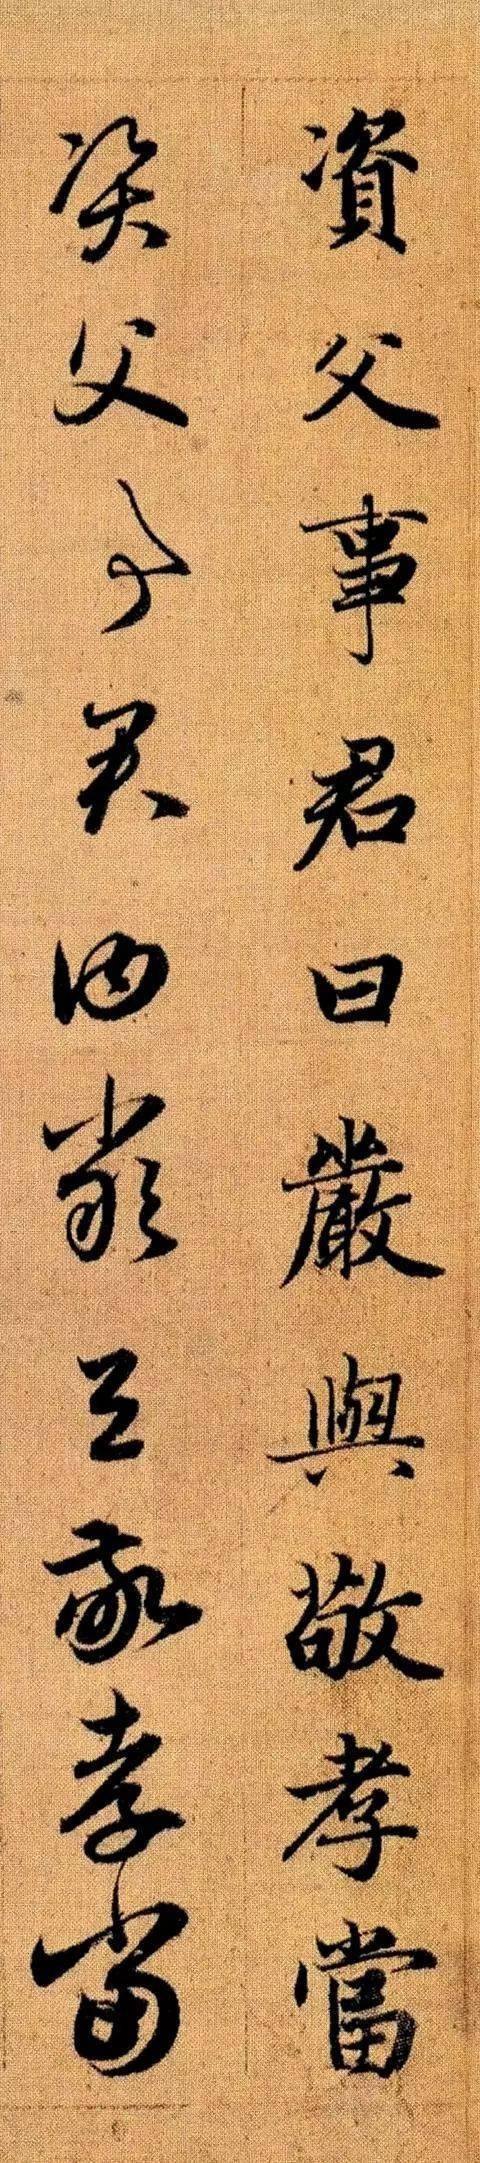 資父事君曰嚴與敬孝當
資父事君曰嚴與敬孝當